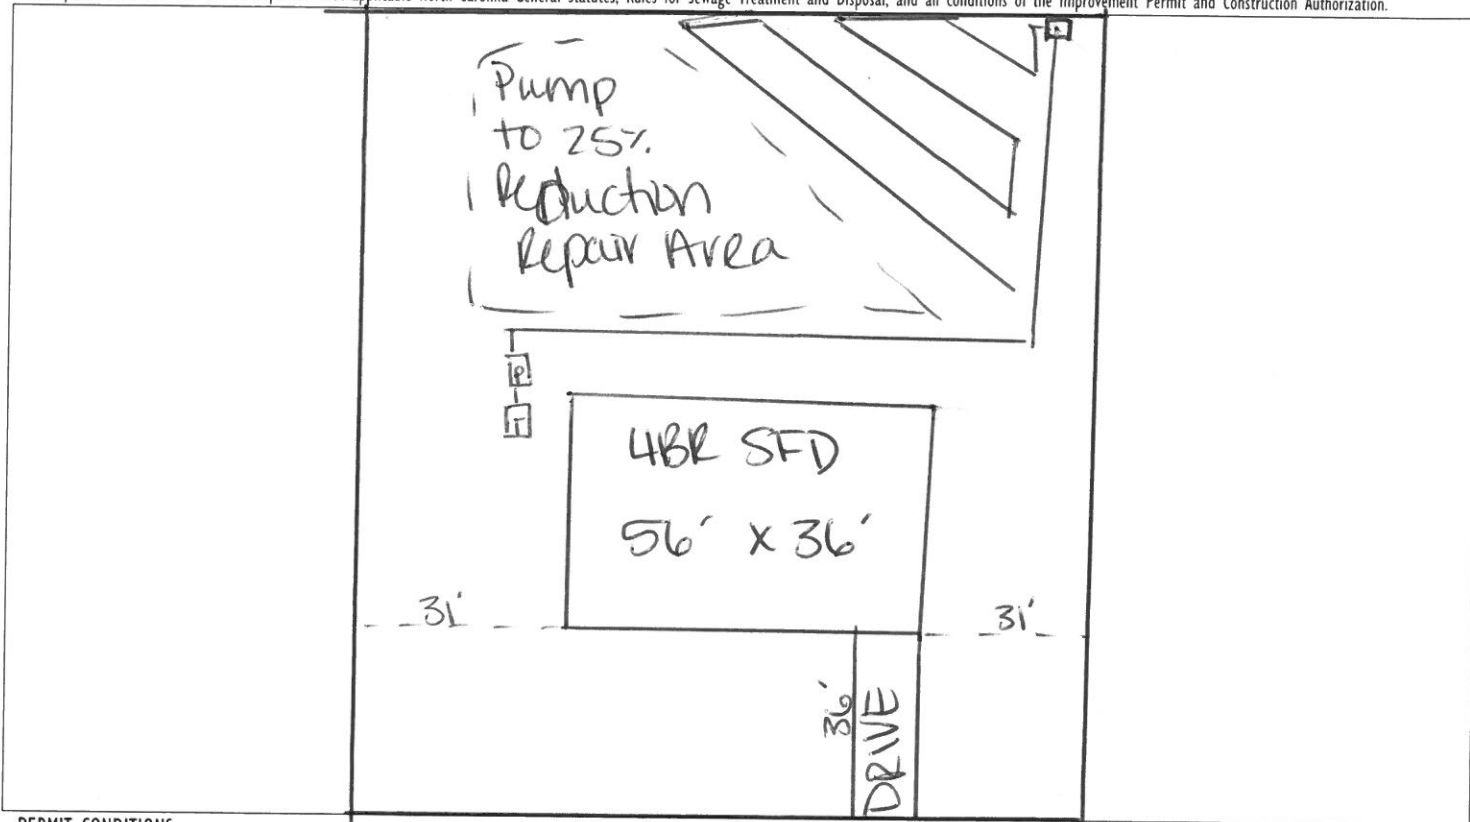 applicable North Carolina General Statutes, Rules for Sewage Treatment and Disposal, and all conditions of the Improvement Permit and Construction Authorization.
Pump
to 25%
Reduction
Repair Area
P
T
4BR SFD
56' x 36'
31'
31'
36'
DRIVE
PERMIT CONDITIONS